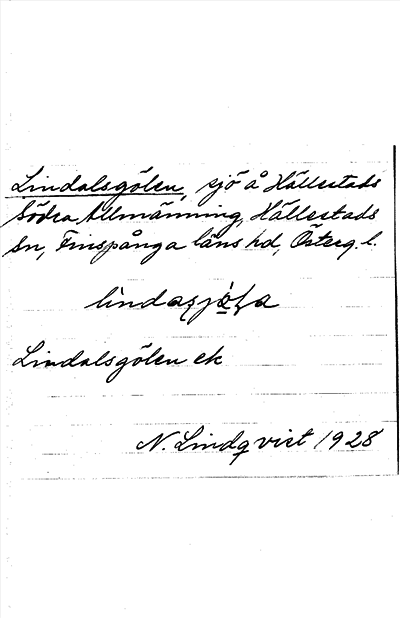 Lindalsgölen, sjö å Hällestads
Södra Allmänning, Hällestads
sn, Finspånga läns hd, Österg. l.
Lindalsgölen ek
N. Lindqvist 1928